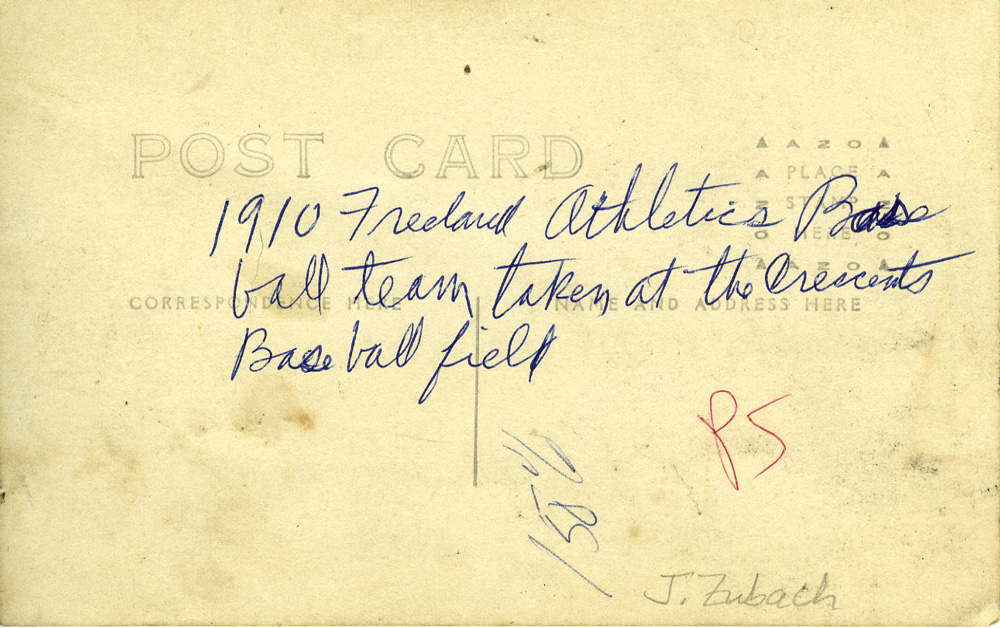 POST CARD
AZO
PLACE
STAMP
HERE
AZO
1910 Freeland Athletics Base
ball team taken at the Crescents
CORRESPONDENCE HERE
NAME AND ADDRESS HERE
Baseball field
P5
J. Zubach